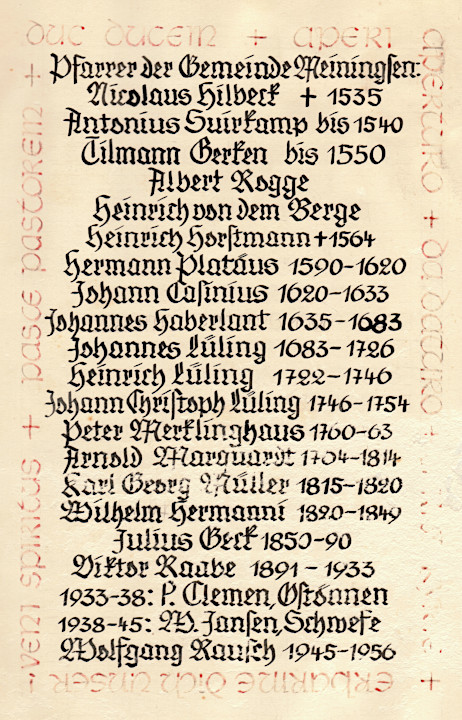 duc ducem + aperi
Pfarrer der Gemeinde Meiningsen:
Nicolaus Hilbeck + 1535
Antonius Suirkamp bis 1540
Tilmann Gerken bis 1550
Albert Rogge
Heinrich von dem Berge
Heinrich Horstmann + 1564
Hermann Platäus 1590-1620
Johann Casinius 1620-1633
Johannes Haberlant 1635-1683
Johannes Lüling 1683-1726
Heinrich Lüling 1722-1746
Johann Christoph Lüling 1746-1754
Peter Merklinghaus 1760-63
Arnold Marquardt 1764-1814
Karl Georg Müller 1815-1820
Wilhelm Hermanni 1820-1849
Julius Beck 1850-90
Viktor Raabe 1891-1933
1933-38: P. Clemen, Ostönnen
1938-45: W. Jansen, Schwefe
Wolfgang Rausch 1945-1956
aperturo + da daturo +
erbarme dich unser
veni spiritus + pasce pastorem +